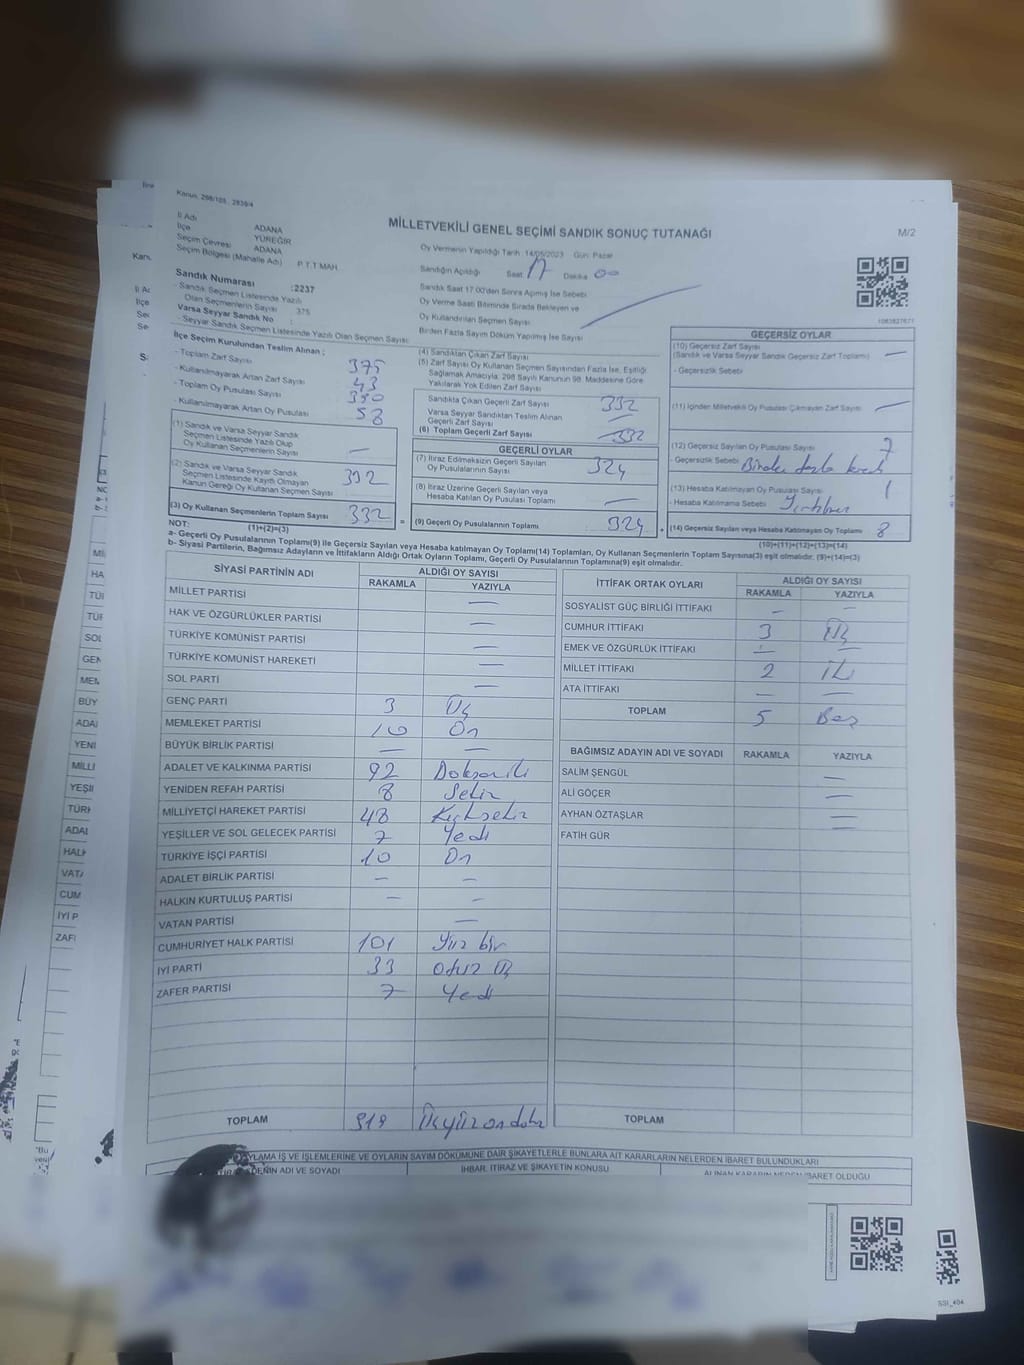 Kanun: 298/105 , 2839/4
İl Adı ADANA
İlçe YÜREĞİR
Seçim Çevresi ADANA
Seçim Bölgesi (Mahalle Adı) P.T.T MAH.
MİLLETVEKİLİ GENEL SEÇİMİ SANDIK SONUÇ TUTANAĞI
M/2
Oy Vermenin Yapıldığı Tarih :14/05/2023 Gün: Pazar
Sandığın Açıldığı Saat 17 Dakika 00
Sandık Saat 17:00'den Sonra Açılmış İse Sebebi
Oy Verme Saati Bitiminde Sırada Bekleyen ve
Oy Kullandırılan Seçmen Sayısı
Birden Fazla Sayım Döküm Yapılmış İse Sayısı
Sandık Numarası :2237
- Sandık Seçmen Listesinde Yazılı
Olan Seçmenlerin Sayısı 375
Varsa Seyyar Sandık No :
- Seyyar Sandık Seçmen Listesinde Yazılı Olan Seçmen Sayısı:
İlçe Seçim Kurulundan Teslim Alınan ;
- Toplam Zarf Sayısı 375
- Kullanılmayarak Artan Zarf Sayısı 43
- Toplam Oy Pusulası Sayısı
- Kullanılmayarak Artan Oy Pusulası 58
(1) Sandık ve Varsa Seyyar Sandık
Seçmen Listesinde Yazılı Olup
Oy Kullanan Seçmenlerin Sayısı —
(2) Sandık ve Varsa Seyyar Sandık
Seçmen Listesinde Kayıtlı Olmayan
Kanun Gereği Oy Kullanan Seçmen Sayısı
(3) Oy Kullanan Seçmenlerin Toplam Sayısı 332
(1)+(2)=(3)
(4) Sandıktan Çıkan Zarf Sayısı
(5) Zarf Sayısı Oy Kullanan Seçmen Sayısından Fazla İse, Eşitliği
Sağlamak Amacıyla; 298 Sayılı Kanunun 98. Maddesine Göre
Yakılarak Yok Edilen Zarf Sayısı
Sandıkta Çıkan Geçerli Zarf Sayısı 332
Varsa Seyyar Sandıktan Teslim Alınan
Geçerli Zarf Sayısı —
(6) Toplam Geçerli Zarf Sayısı 332
GEÇERLİ OYLAR
(7) İtiraz Edilmeksizin Geçerli Sayılan
Oy Pusulalarının Sayısı 324
(8) İtiraz Üzerine Geçerli Sayılan veya
Hesaba Katılan Oy Pusulası Toplamı —
= (9) Geçerli Oy Pusulalarının Toplamı 324 +
1083827671
GEÇERSİZ OYLAR
(10) Geçersiz Zarf Sayısı
(Sandık ve Varsa Seyyar Sandık Geçersiz Zarf Toplamı) —
- Geçersizlik Sebebi
(11) İçinden Milletvekili Oy Pusulası Çıkmayan Zarf Sayısı —
(12) Geçersiz Sayılan Oy Pusulası Sayısı 7
- Geçersizlik Sebebi Birden fazla
(13) Hesaba Katılmayan Oy Pusulası Sayısı 1
- Hesaba Katılmama Sebebi
(14) Geçersiz Sayılan veya Hesaba Katılmayan Oy Toplamı 8
(10)+(11)+(12)+(13)=(14)
NOT:
a- Geçerli Oy Pusulalarının Toplamı(9) ile Geçersiz Sayılan veya Hesaba katılmayan Oy Toplamı(14) Toplamları, Oy Kullanan Seçmenlerin Toplam Sayısına(3) eşit olmalıdır. (9)+(14)=(3)
b- Siyasi Partilerin, Bağımsız Adayların ve İttifakların Aldığı Ortak Oyların Toplamı, Geçerli Oy Pusulalarının Toplamına(9) eşit olmalıdır.
SİYASİ PARTİNİN ADI ALDIĞI OY SAYISI
RAKAMLA YAZIYLA
MİLLET PARTİSİ —
HAK VE ÖZGÜRLÜKLER PARTİSİ —
TÜRKİYE KOMÜNİST PARTİSİ —
TÜRKİYE KOMÜNİST HAREKETİ —
SOL PARTİ —
GENÇ PARTİ 3 Üç
MEMLEKET PARTİSİ 10 On
BÜYÜK BİRLİK PARTİSİ — —
ADALET VE KALKINMA PARTİSİ 92 Doksan iki
YENİDEN REFAH PARTİSİ 8 Sekiz
MİLLİYETÇİ HAREKET PARTİSİ 48 Kırksekiz
YEŞİLLER VE SOL GELECEK PARTİSİ 7 Yedi
TÜRKİYE İŞÇİ PARTİSİ 10 On
ADALET BİRLİK PARTİSİ — —
HALKIN KURTULUŞ PARTİSİ — —
VATAN PARTİSİ —
CUMHURİYET HALK PARTİSİ 101 Yüz bir
İYİ PARTİ 33 Otuz Üç
ZAFER PARTİSİ 7 Yedi
TOPLAM 319 Üçyüz on dokuz
İTTİFAK ORTAK OYLARI ALDIĞI OY SAYISI
RAKAMLA YAZIYLA
SOSYALİST GÜÇ BİRLİĞİ İTTİFAKI — —
CUMHUR İTTİFAKI 3 Üç
EMEK VE ÖZGÜRLÜK İTTİFAKI — —
MİLLET İTTİFAKI 2 İki
ATA İTTİFAKI — —
TOPLAM 5 Beş
BAĞIMSIZ ADAYIN ADI VE SOYADI RAKAMLA YAZIYLA
SALİM ŞENGÜL —
ALİ GÖÇER —
AYHAN ÖZTAŞLAR —
FATİH GÜR —
TOPLAM
OYLAMA İŞ VE İŞLEMLERİNE VE OYLARIN SAYIM DÖKÜMÜNE DAİR ŞİKAYETLERLE BUNLARA AİT KARARLARIN NELERDEN İBARET BULUNDUKLARI
ADI VE SOYADI
İHBAR, İTİRAZ VE ŞİKAYETİN KONUSU
ALINAN KARARIN NEDEN İBARET OLDUĞU